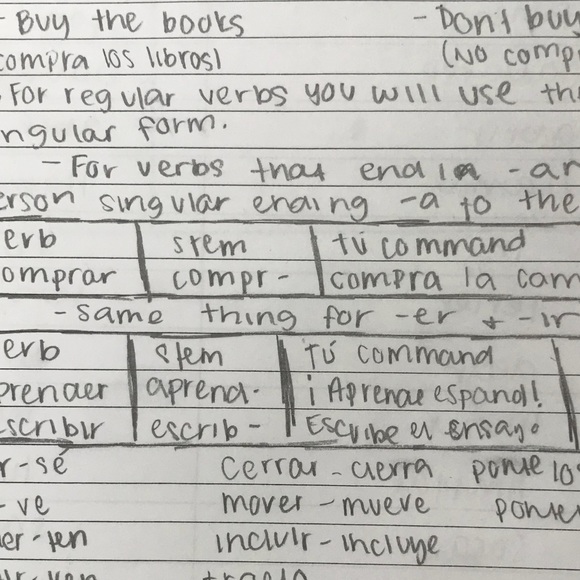 - Buy the books - Don't buy
compra los libros) (No comp
For regular verbs you will use th
ngular form.
- For verbs that end in -ar
erson singular ending -a to the
erb stem tú command
omprar compr- compra la cam
- same thing for -er & -ir
erb stem tú command
prender aprend- ¡Aprende español!
scribir escrib- Escribe el ensayo
r-sé cerrar-cierra ponte lo
- ve mover-mueve ponte
er-ten incluir-incluye